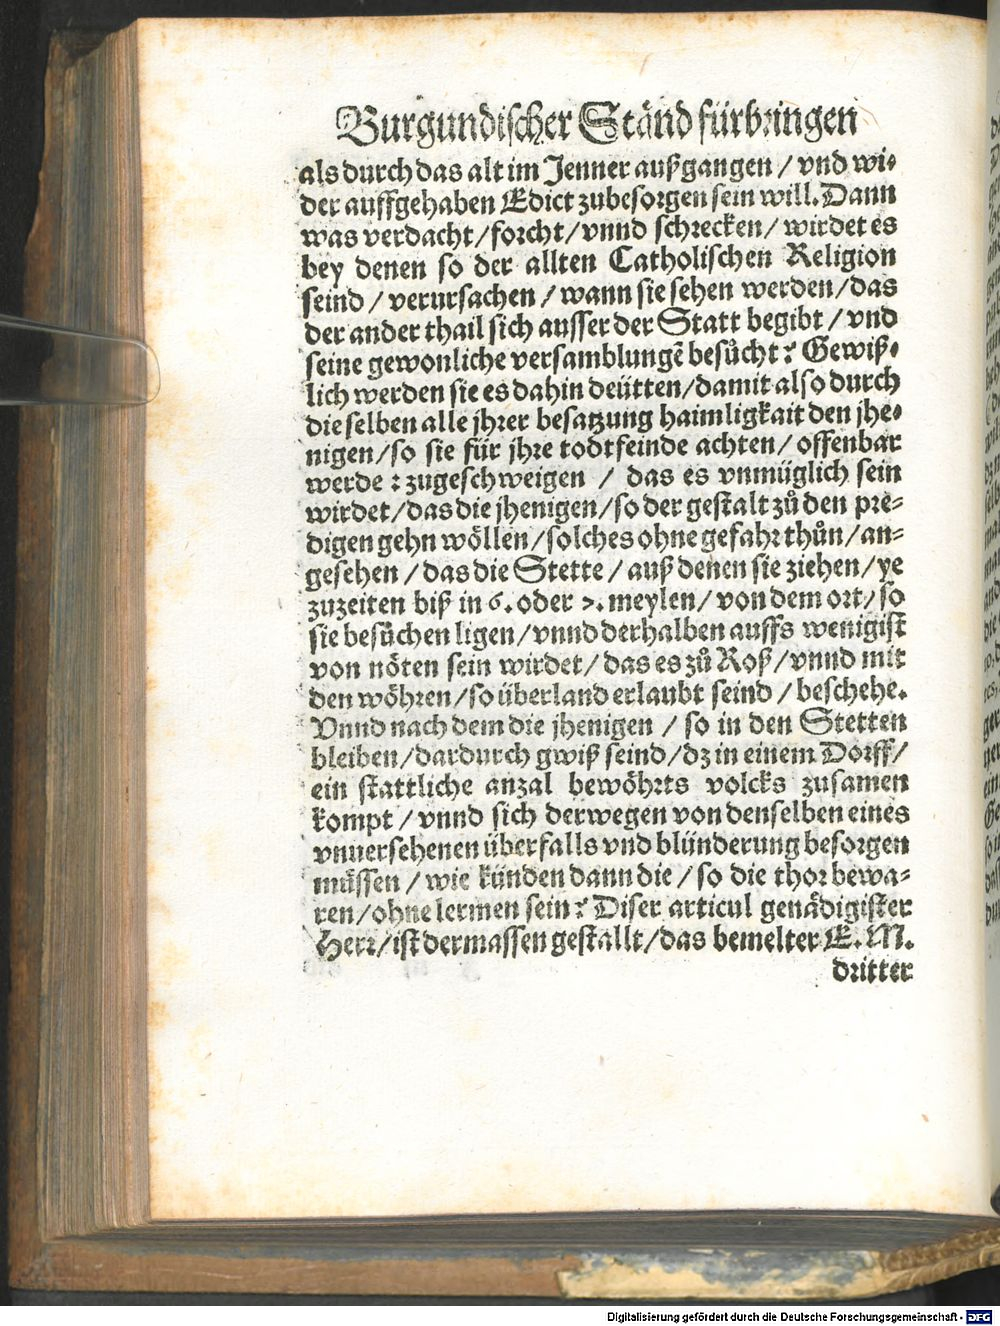 Burgundischer Ständ fürbringen
als durch das alt im Jenner außgangen / vnd wi⸗
der auffgehaben Edict zubesorgen sein will. Dann
was verdacht / forcht / vnnd schrecken / wirdet es
bey denen so der allten Catholischen Religion
seind / verursachen / wann sie sehen werden / das
der ander thail sich ausser der Statt begibt / vnd
seine gewonliche versamblungẽ besůcht? Gewiß⸗
lich werden sie es dahin deütten / damit also durch
die selben alle jhrer besatzung haimligkait den jhe⸗
nigen / so sie für jhre todtfeinde achten / offenbar
werde: zugeschweigen / das es vnmüglich sein
wirdet / das die jhenigen / so der gestalt zů den pre⸗
digen gehn wöllen / solches ohne gefahr thůn / an⸗
gesehen / das die Stette / auß denen sie ziehen / ye
zuzeiten biß in 6. oder 7. meylen / von dem ort / so
sie besůchen ligen / vnnd derhalben auffs wenigist
von nöten sein wirdet / das es zů Roß / vnnd mit
den wöhren / so überland erlaubt seind / beschehe.
Vnnd nach dem die jhenigen / so in den Stetten
bleiben / dardurch gwiß seind / dz in einem Dorff /
ein stattliche anzal bewöhrts volcks zusamen
kompt / vnnd sich derwegen von denselben eines
vnuersehenen überfalls vnd blünderung besorgen
müssen / wie künden dann die / so die thor bewa⸗
ren / ohne lermen sein? Diser articul genädigister
Herr / ist dermassen gestallt / das bemelter E. M.
dritter
Digitalisierung gefördert durch die Deutsche Forschungsgemeinschaft - DFG